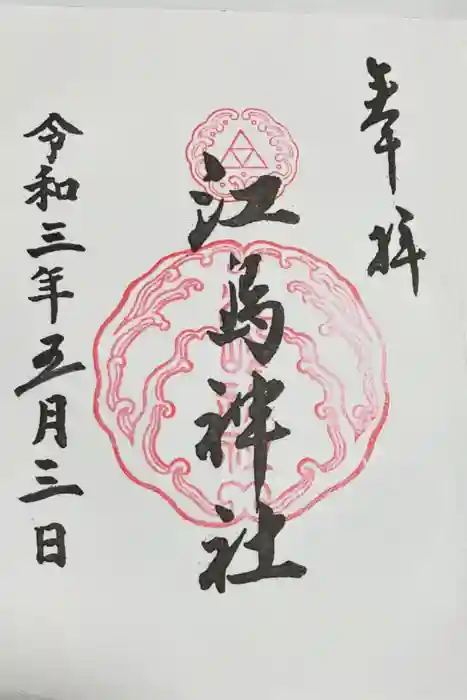 奉拝
江島神社
令和三年五月三日